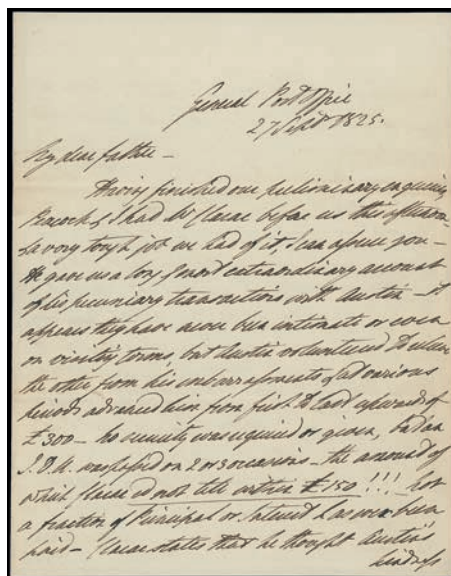 General Post Office
27 Sept 1825.
My dear father –
Having finished our preliminary enquiries
Peacock & I had Mr Clare before us this afternoon
& a very tough job we had of it, I can assure you –
He gave us a long & most extraordinary account
of his pecuniary transactions with Austin – it
appears they have never been intimate or even
on visiting terms, but Austin volunteered to relieve
the other from his embarrassments & at various
periods advanced him from first to last upwards of
£300 – no security was required or given, but an
I.O.U. was passed on 2 or 3 occasions – the amount of
which Clare could not tell within £150!!! Not
a fraction of Principal or Interest has ever been
paid – Clare states that he thought Austin's
kindness